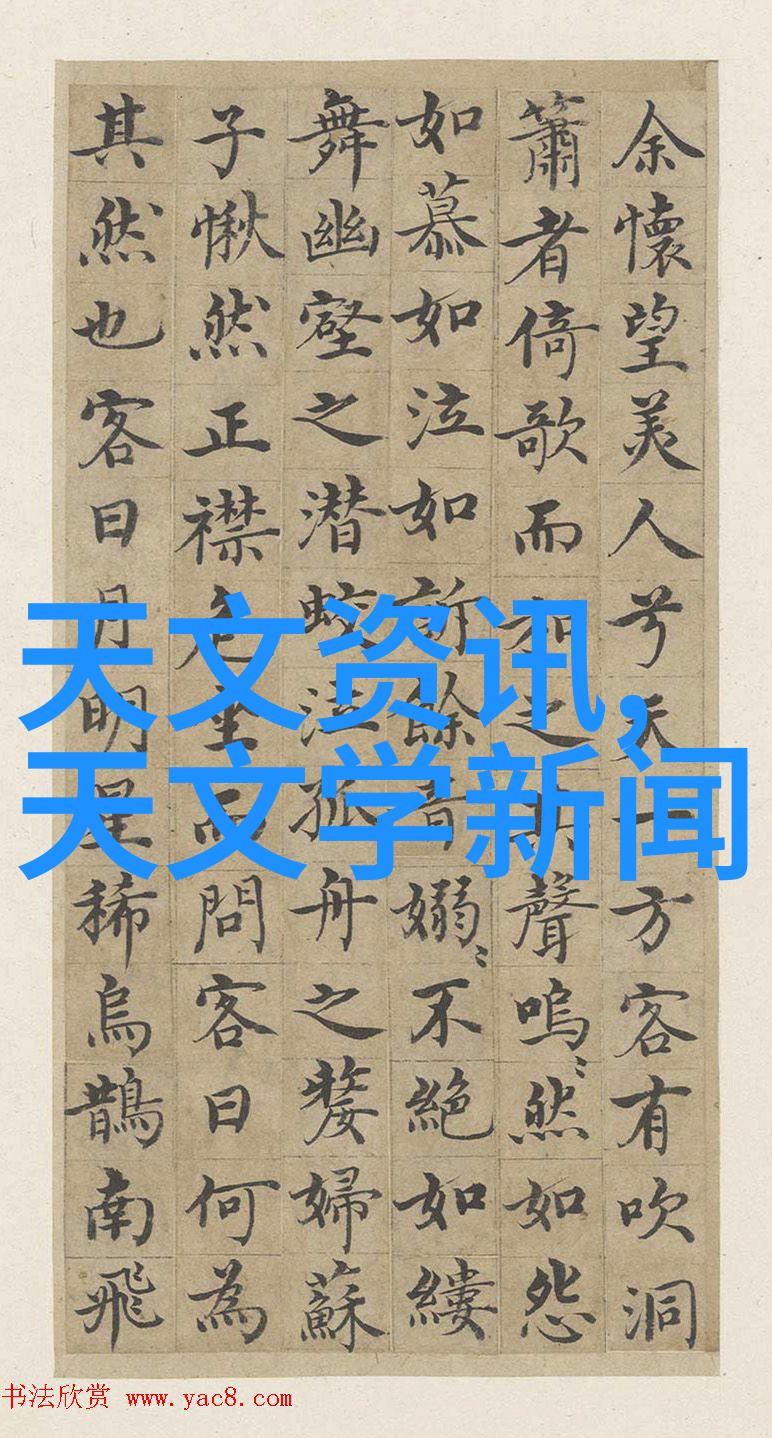 余懷望美人兮天一方客有吹洞
簫者倚歌而和之其聲嗚〻然如怨
如慕如泣如訴餘音嫋〻不絶如縷
舞幽壑之潜蛟泣孤舟之嫠婦蘇
子愀然正襟危坐而問客曰何為
其然也客曰月明星稀烏鵲南飛
天文资讯,
天文学新闻
书法欣赏 www.yac8.com